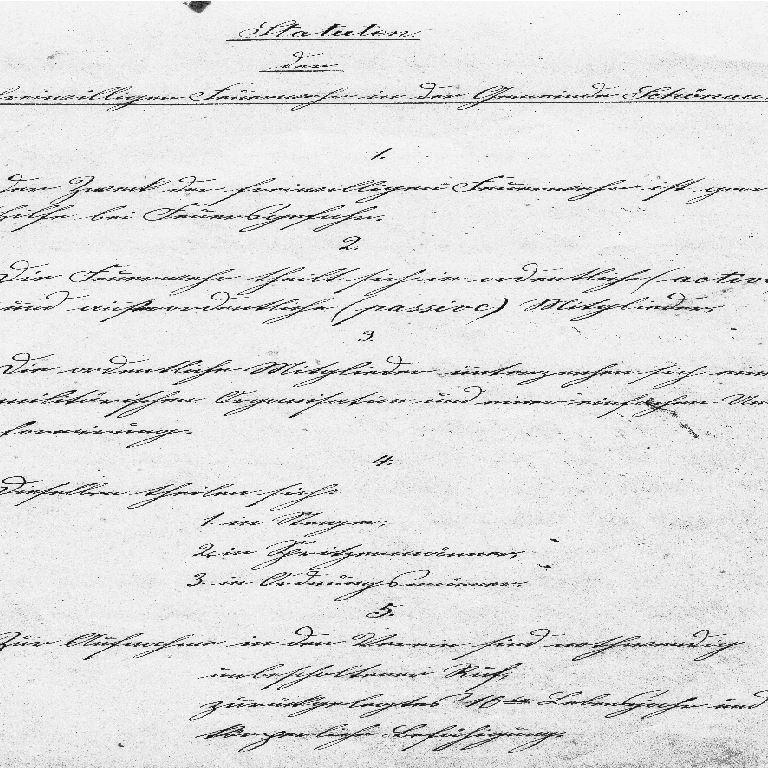 Statuten
der
freiwilligen Feuerwehr in der Gemeinde Schönau.
1.
Der Zweck der freiwilligen Feuerwehr ist
hilfe bei Feuersgefahr.
2.
Die Feuerwehr theilt sich in ordentliche (active
und außerordentliche (passive) Mitglieder
3.
Die ordentliche Mitglieder unterziehen sich einer
militärischen Organisation und einer einfachen Uni
formirung.
4.
Dieselben theilen sich:
1. in Steiger,
2. in Spritzenmänner,
3. in Ordnungsmänner.
5.
Zur Aufnahme in den Verein sind nothwendig
unbescholtener Ruf,
zurückgelegtes Lebensjahr und
körperliche Befähigung.